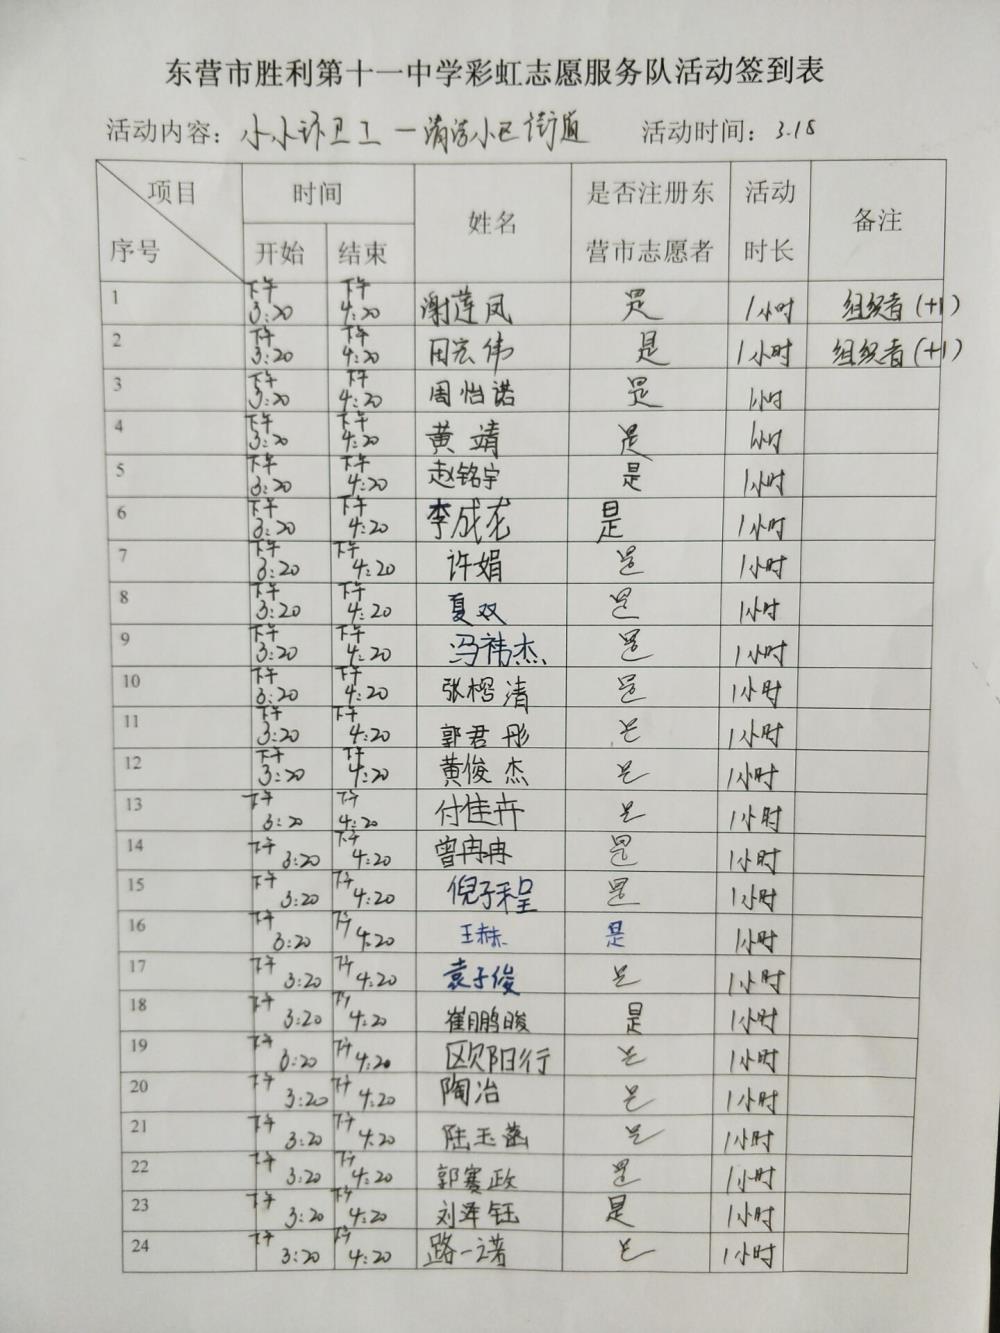 东营市胜利第十一中学彩虹志愿服务队活动签到表
活动内容：小小环卫工一清洁小区街道 活动时间：3.18
项目 序号 时间 开始 结束 姓名 是否注册东营市志愿者 活动时长 备注
1 下午3:20 下午4:20 谢莲凤 是 1小时 组织者(+1)
2 下午3:20 下午4:20 周宏伟 是 1小时 组织者(+1)
3 下午3:20 下午4:20 周怡诺 是 1小时
4 下午3:20 下午4:20 黄靖 是 1小时
5 下午3:20 下午4:20 赵铭宇 是 1小时
6 下午3:20 下午4:20 李成龙 是 1小时
7 下午3:20 下午4:20 许娟 是 1小时
8 下午3:20 下午4:20 夏双 是 1小时
9 下午3:20 下午4:20 冯祎杰 是 1小时
10 下午3:20 下午4:20 是 1小时
11 下午3:20 下午4:20 郭君彤 是 1小时
12 下午3:20 下午4:20 黄俊杰 是 1小时
13 下午3:20 下午4:20 付佳卉 是 1小时
14 下午3:20 下午4:20 曾冉冉 是 1小时
15 下午3:20 下午4:20 倪子程 是 1小时
16 下午3:20 下午4:20 是 1小时
17 下午3:20 下午4:20 袁子俊 是 1小时
18 下午3:20 下午4:20 崔鹏晙 是 1小时
19 下午3:20 下午4:20 欧阳行 是 1小时
20 下午3:20 下午4:20 陶冶 是 1小时
21 下午3:20 下午4:20 陆玉菡 是 1小时
22 下午3:20 下午4:20 郭赛政 是 1小时
23 下午3:20 下午4:20 刘泽钰 是 1小时
24 下午3:20 下午4:20 路一诺 是 1小时